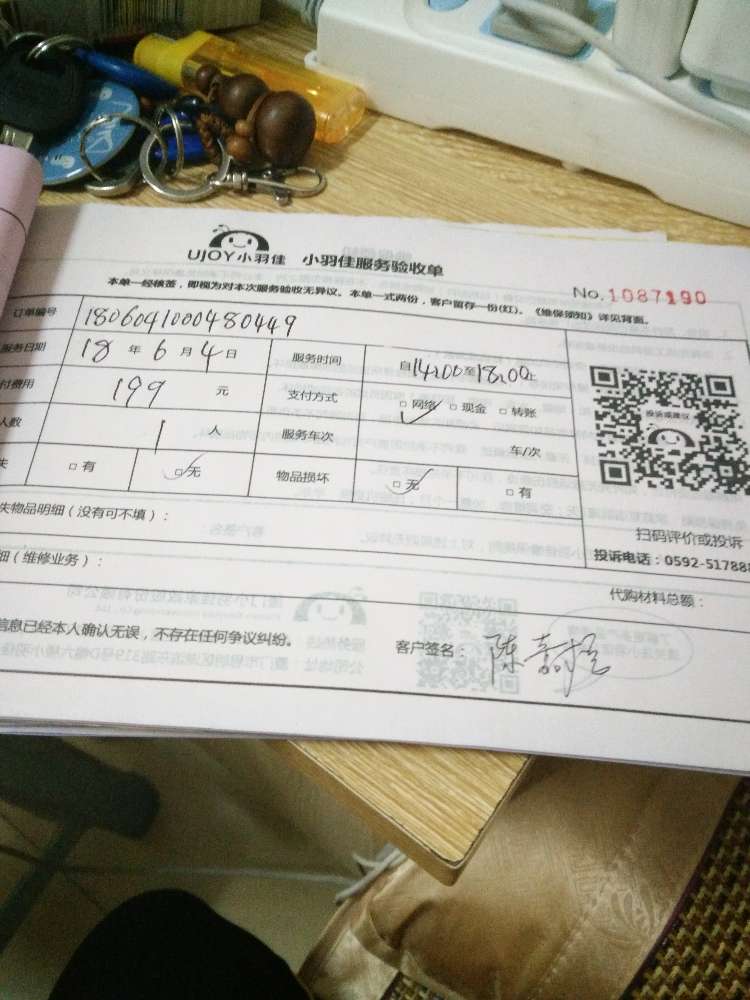 UJOY小羽佳 小羽佳服务验收单
No.1087190
本单一经核签，即视为对本次服务验收无异议。本单一式两份，客户留存一份(红)。《维保须知》详见背面。
订单编号 1806041000480449
服务日期 18 年 6 月 4 日 服务时间 自14:00至18:00止
付费用 199 元 支付方式 □网络 □现金 □转账
人数 1 人 服务车次 车/次
失 □有 □无 物品损坏 □无 □有
投诉或建议
失物品明细（没有可不填）：
扫码评价或投诉
投诉电话：0592-517888
细（维修业务）：
代购材料总额：
信息已经本人确认无误，不存在任何争议纠纷。
客户签名：陈